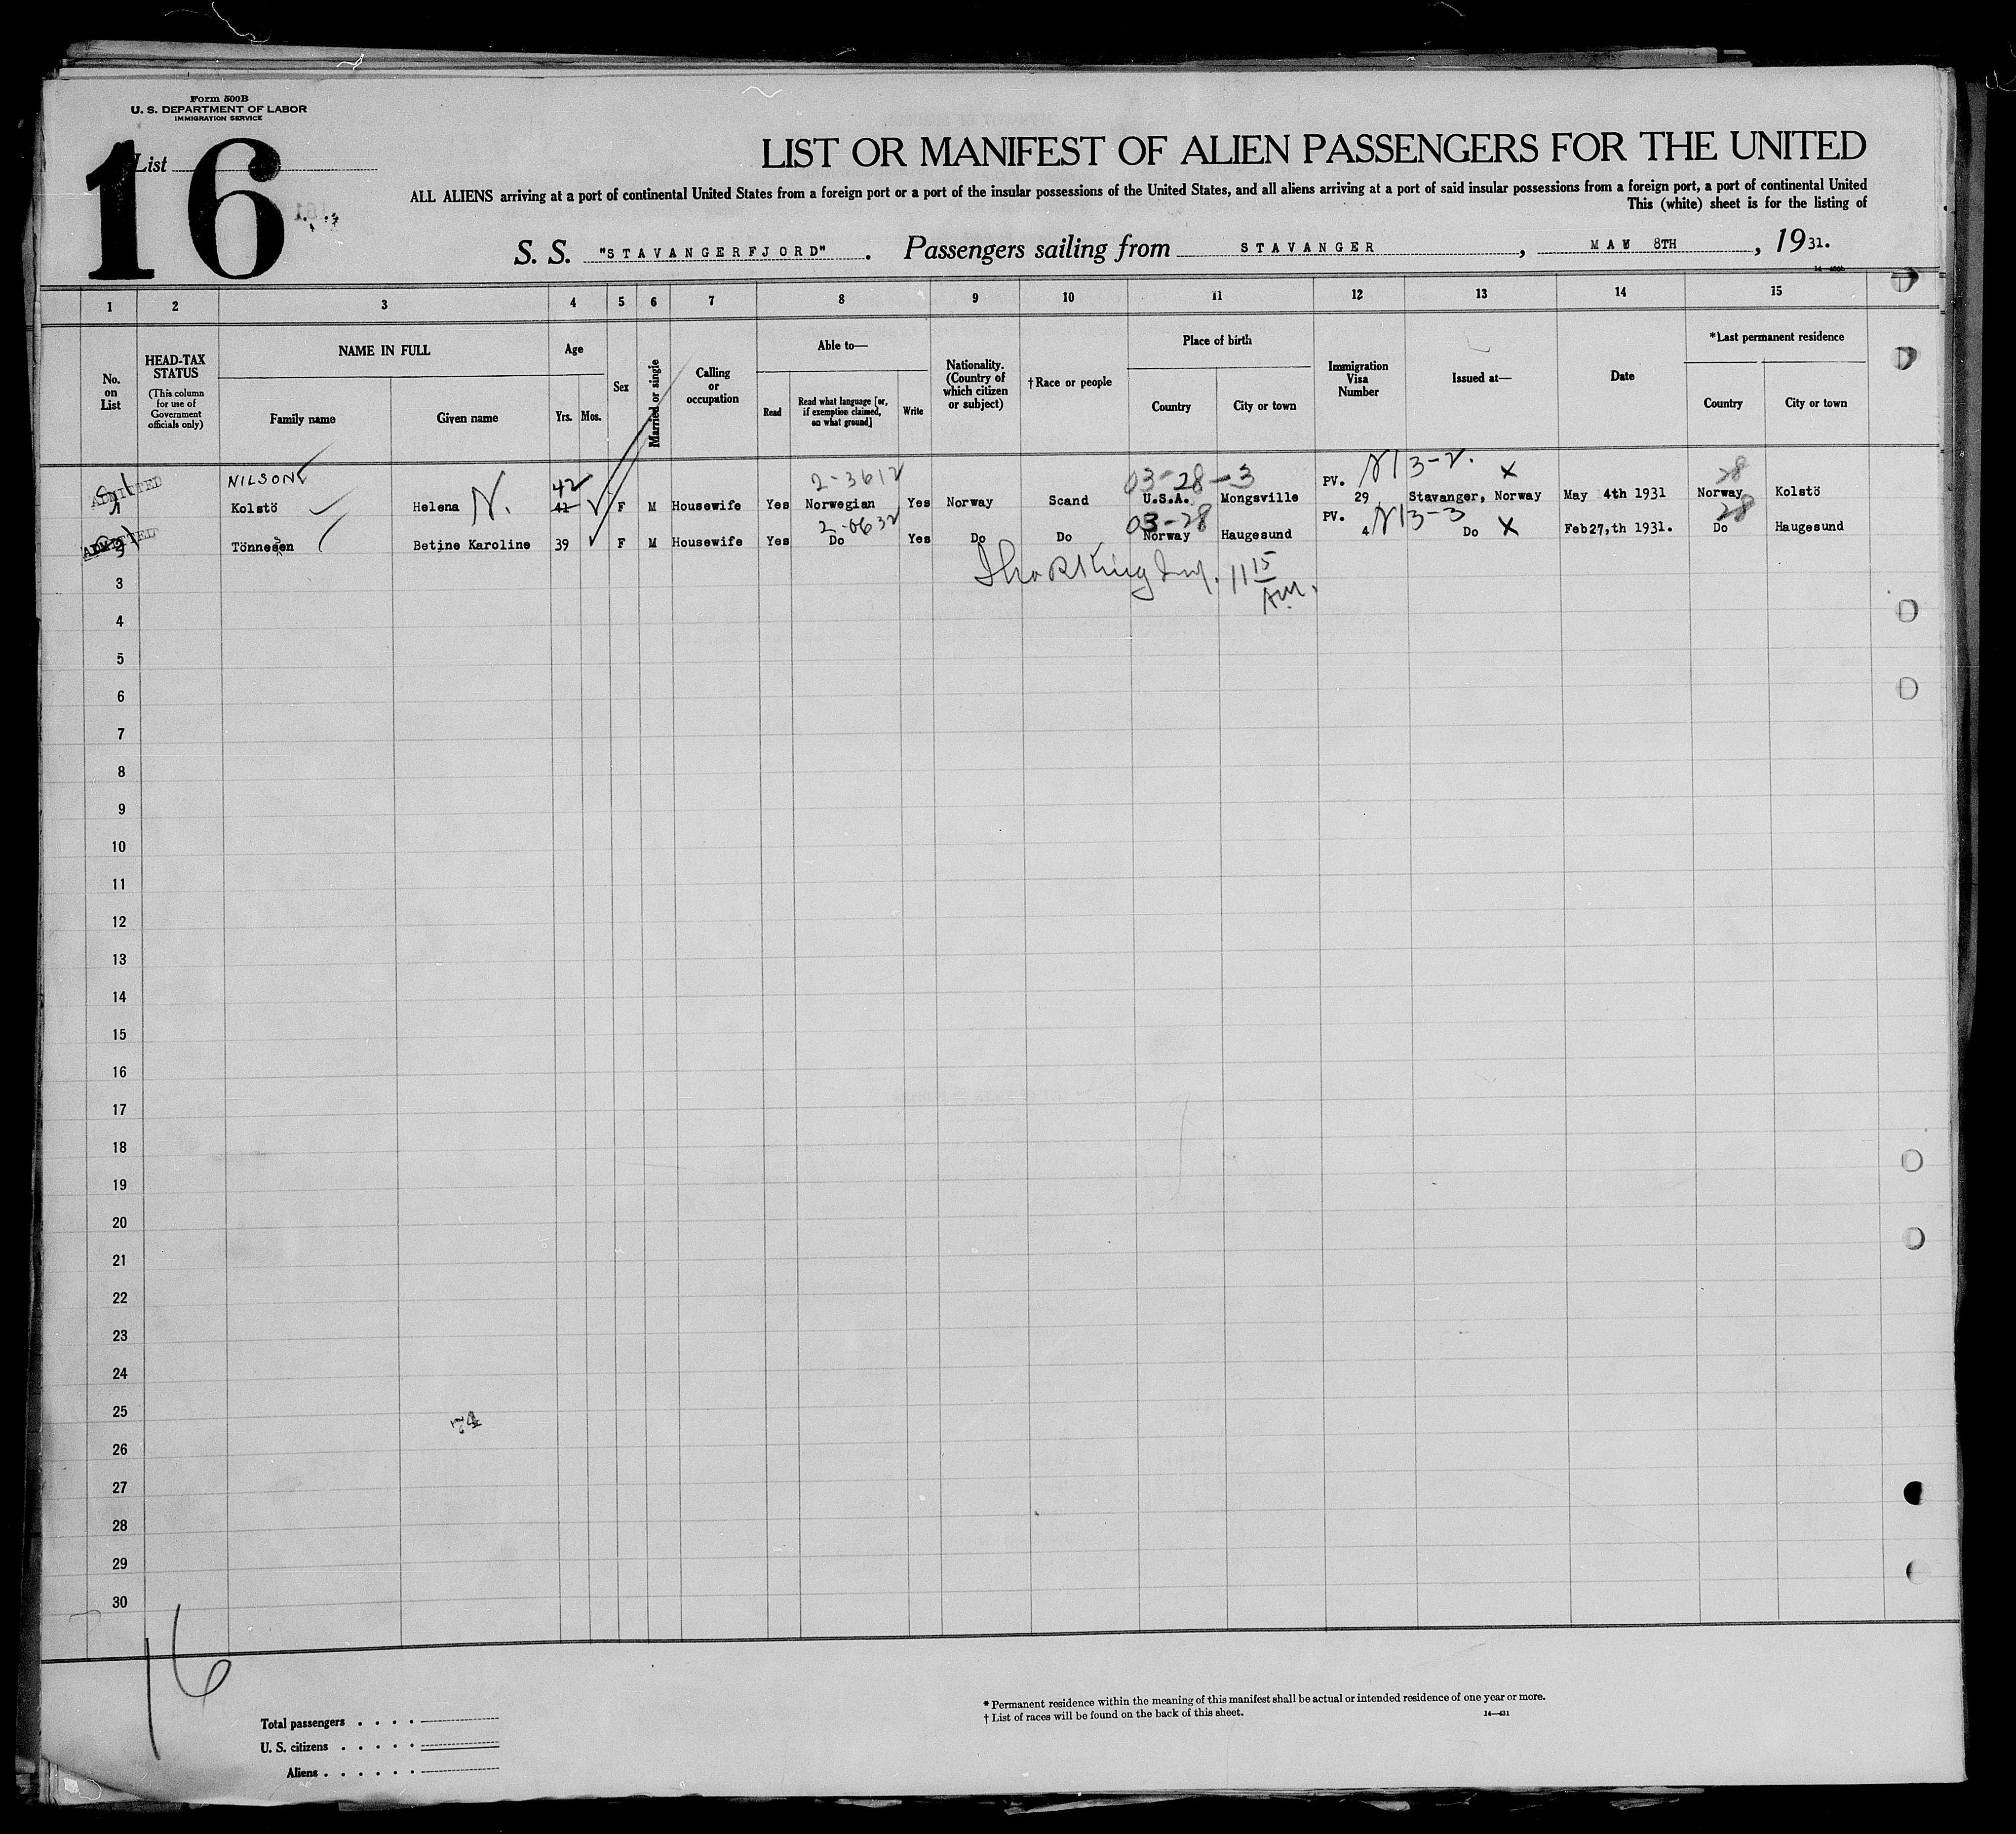 Form 500B
U. S. DEPARTMENT OF LABOR
IMMIGRATION SERVICE
List 16
LIST OR MANIFEST OF ALIEN PASSENGERS FOR THE UNITED
ALL ALIENS arriving at a port of continental United States from a foreign port or a port of the insular possessions of the United States, and all aliens arriving at a port of said insular possessions from a foreign port, a port of continental United
This (white) sheet is for the listing of
S. S. "STAVANGERFJORD". Passengers sailing from STAVANGER, MAY 8TH, 1931.
1 2 3 4 5 6 7 8 9 10 11 12 13 14 15
No. on List
HEAD-TAX STATUS (This column for use of Government officials only)
NAME IN FULL
Family name Given name
Age
Yrs. Mos.
Sex
Married or single
Calling or occupation
Able to—
Read Read what language [or, if exemption claimed, on what ground] Write
Nationality. (Country of which citizen or subject)
†Race or people
Place of birth
Country City or town
Immigration Visa Number
Issued at—
Date
*Last permanent residence
Country City or town
NILSON 42 2-3612 03-28-3 PV. N13-2. X 28
ADMITTED Kolstö Helena N. 41 F M Housewife Yes Norwegian Yes Norway Scand U.S.A. Mongsville 29 Stavanger, Norway May 4th 1931 Norway Kolstö
2-0632 03-28 PV. N13-3 X 28
ADMITTED Tönnesen Betine Karoline 39 F M Housewife Yes Do Yes Do Do Norway Haugesund 4 Do Feb27,th 1931. Do Haugesund
11 15 AM.
3
4
5
6
7
8
9
10
11
12
13
14
15
16
17
18
19
20
21
22
23
24
25
74
26
27
28
29
30
16
* Permanent residence within the meaning of this manifest shall be actual or intended residence of one year or more.
† List of races will be found on the back of this sheet.
14—431
Total passengers . . . .
U. S. citizens . . . . .
Aliens . . . . . .